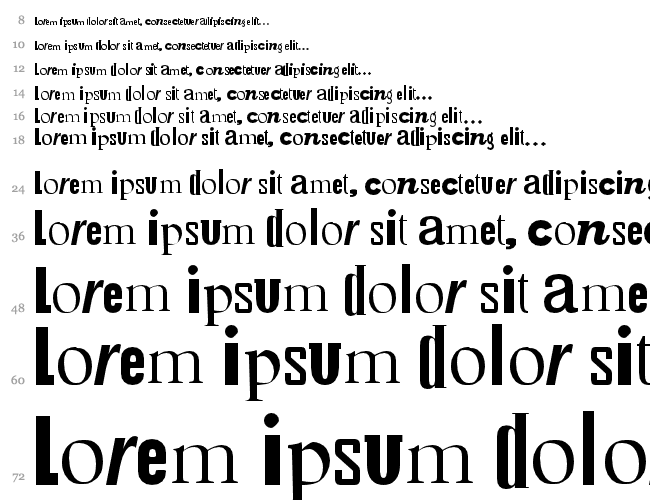 8 Lorem ipsum dolor sit amet, consectetuer adipiscing elit...
10 Lorem ipsum dolor sit amet, consectetuer adipiscing elit...
12 Lorem ipsum dolor sit amet, consectetuer adipiscing elit...
14 Lorem ipsum dolor sit amet, consectetuer adipiscing elit...
16 Lorem ipsum dolor sit amet, consectetuer adipiscing elit...
18 Lorem ipsum dolor sit amet, consectetuer adipiscing elit...
24 Lorem ipsum dolor sit amet, consectetuer adipiscin
36 Lorem ipsum dolor sit amet, conse
48 Lorem ipsum dolor sit ame
60 Lorem ipsum dolor sit
72 Lorem ipsum dolo